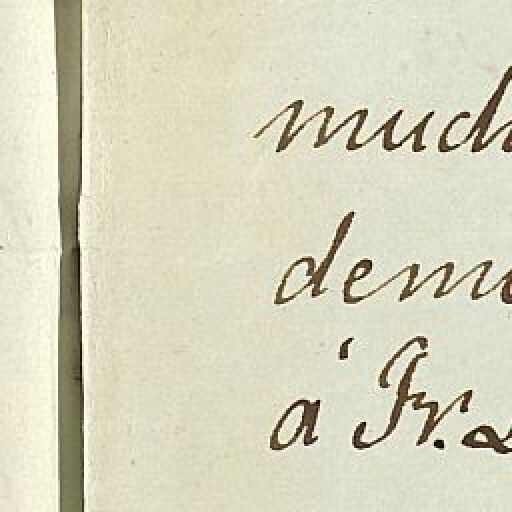 much
demu
á Fr.